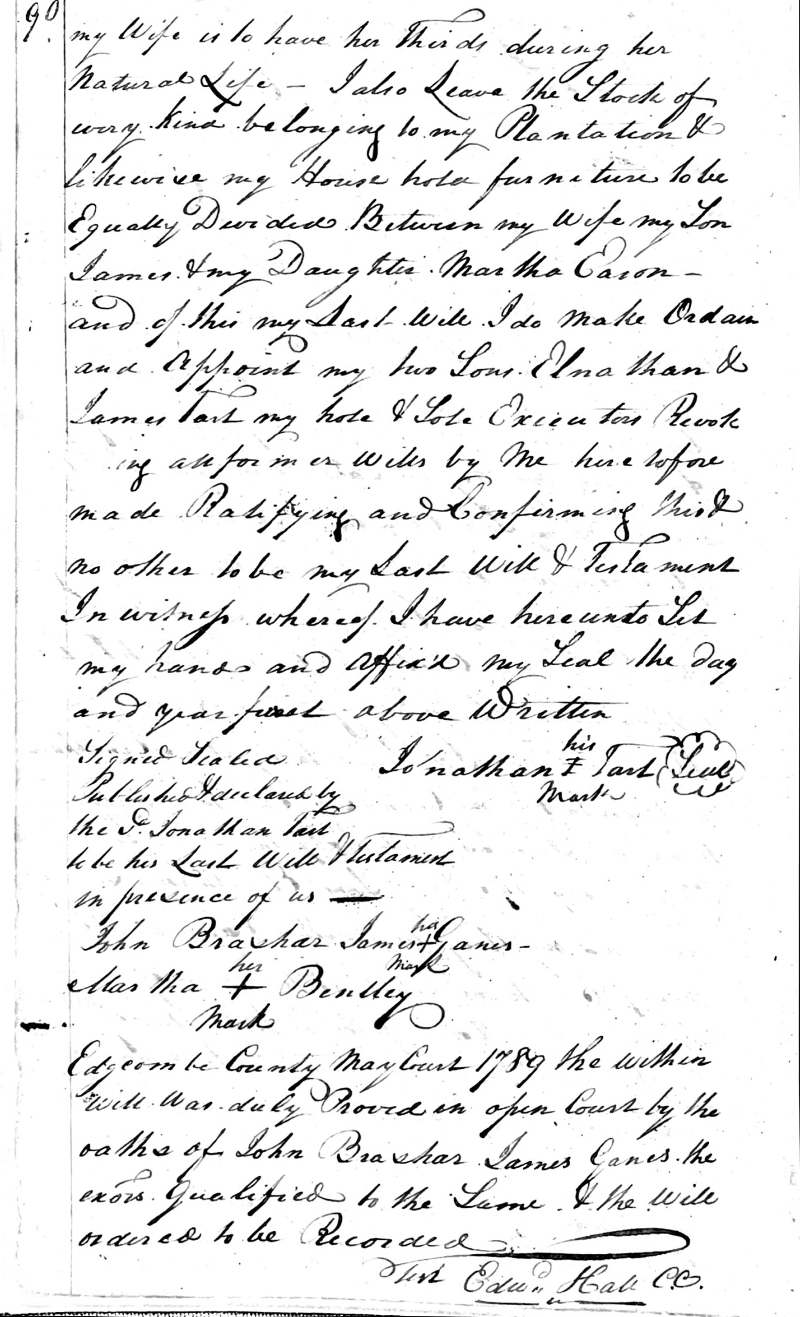 90
my Wife is to have her Thirds during her
Natural Life – I also Leave the Stock of
every Kind belonging to my Plantation &
likewise my House hold furneture to be
Equally Devided Between my Wife my Son
James & my Daughter Martha Eason –
and of this my Last Will I do make Ordain
and Appoint my two Sons Elnathan &
James Tart my hole & Sole Executors Revok
ing all former Wills by Me here tofore
made Ratifying and Confirming this &
no other to be my Last Will & Testament
In witness whereof I have hereunto Set
my hand and Affix'd my Seal the day
and year first above Written
Signed Sealed
Jonathan his ‡ Mark Tart (Seal)
Published & declared by
the Sd. Jonathan Tart
to be his Last Will & Testament
in presence of us —
John Brashar James his + Mark Ganes –
Martha her + Mark Bentley
Edgcombe County May Court 1789 the within
Will Was duly Proved in open Court by the
oaths of John Brashar James Ganes the
exors Qualified to the Same & the Will
ordered to be Recorded
Test Edwd Hall C.C.